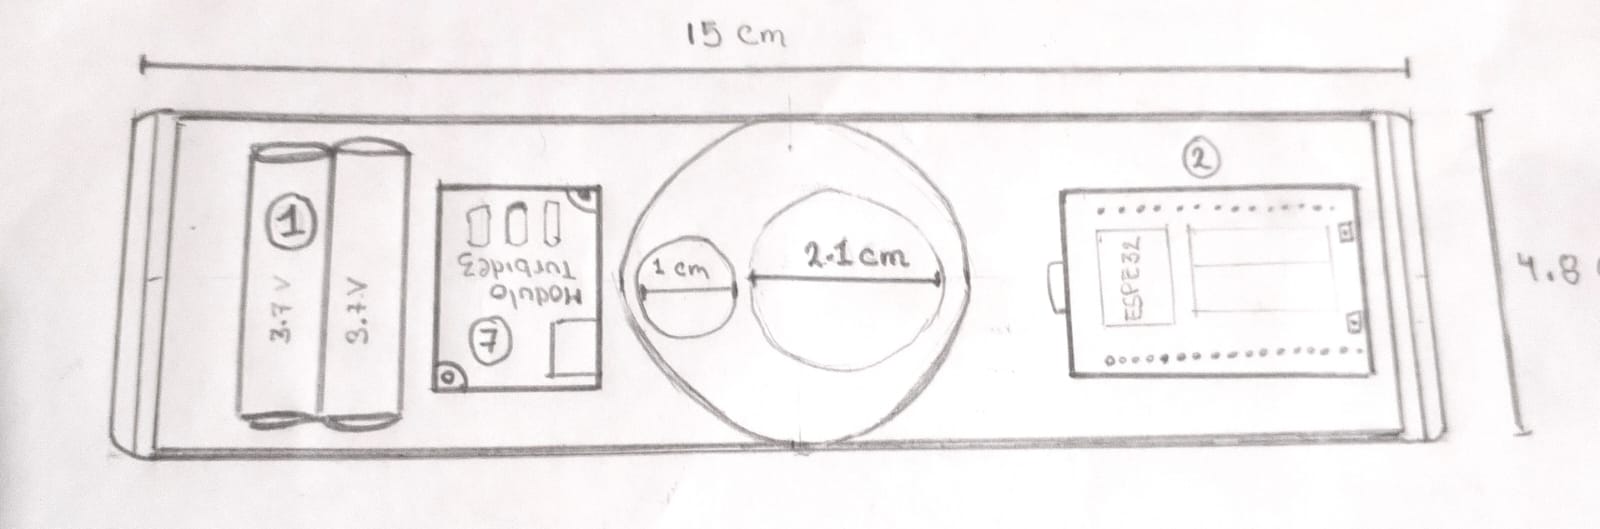 15 cm
1
3.7 V
3.7 V
Modulo
Turbidez
7
1 cm
2.1 cm
2
ESPE32
4.8